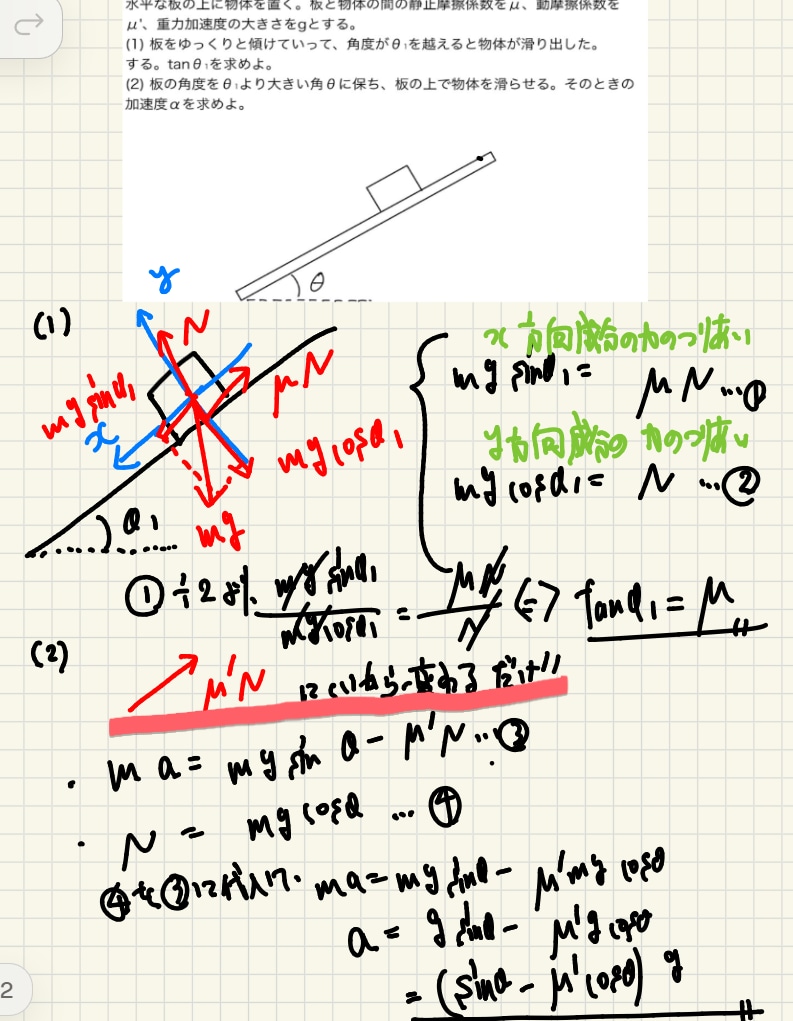 水平な板の上に物体を置く。板と物体の間の静止摩擦係数をμ、動摩擦係数を
μ'、重力加速度の大きさをgとする。
(1) 板をゆっくりと傾けていって、角度がθ₁を越えると物体が滑り出した。
する。tanθ₁を求めよ。
(2) 板の角度をθ₁より大きい角θに保ち、板の上で物体を滑らせる。そのときの
加速度αを求めよ。
θ
(1)
y
N
μN
mg sinθ₁
x
mg cosθ₁
mg
θ₁
x方向成分の力のつりあい
mg sinθ₁ = μN …①
y方向成分の力のつりあい
mg cosθ₁ = N …②
①÷②より mg sinθ₁/mg cosθ₁ = μN/N ⇔ tanθ₁ = μ
(2)
μ'N
変わるだけ!!
・ ma = mg sinθ - μ'N …③
・ N = mg cosθ …④
④を③に代入して. ma = mg sinθ - μ'mg cosθ
a = g sinθ - μ'g cosθ
= (sinθ - μ'cosθ) g
2